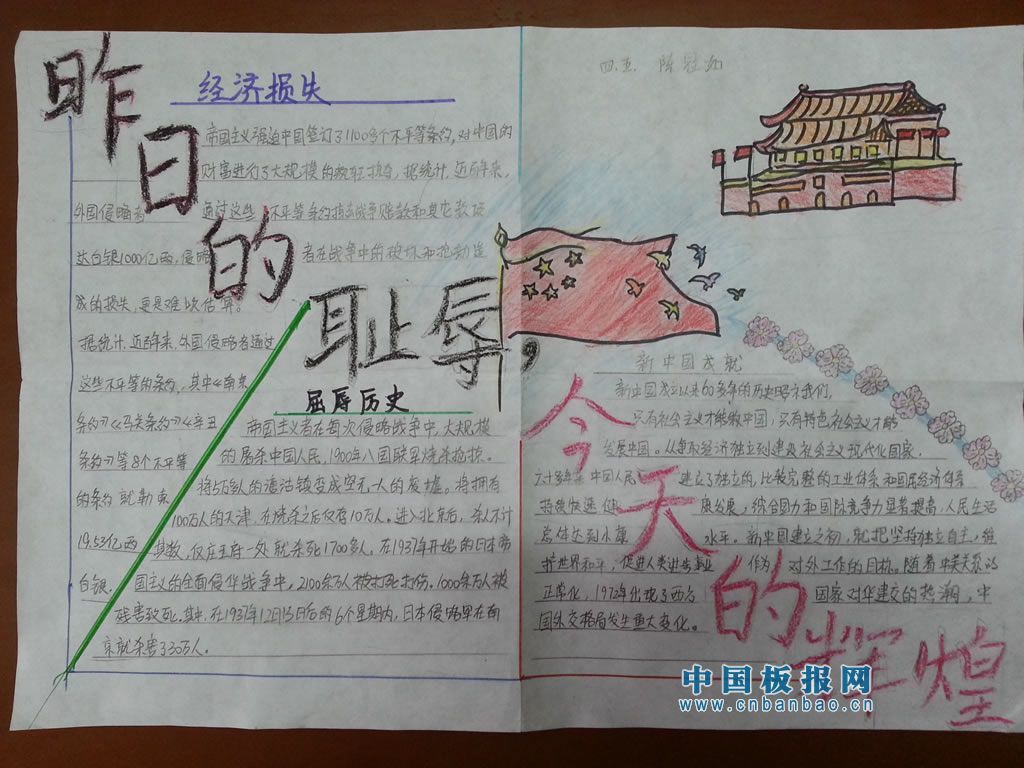 昨日的耻辱,
今天的辉煌
四.五
经济损失
帝国主义强迫中国签订了1100多个不平等条约,对中国的
财富进行了大规模的 据统计,近百年来,
外国侵略者 通过这些不平等条约 战争赔款和其它款项
达白银1000亿两,侵略 者在战争中的破坏和 造
成的损失,更是难以估算。
据统计,近百年来,外国侵略者通过
这些不平等的条约,其中《南京
条约》《马关条约》《辛丑
条约》等8个不平等
的条约就勒索
19.53亿两
白银.
屈辱历史
帝国主义者在每次侵略战争中,大规模
的屠杀中国人民,1900年八国联军烧杀抢掠.
将5万多人的塘沽镇变成空无一人的废墟。将拥有
100万人的天津,在烧杀之后仅存10万人。进入北京后,杀人不计
其数,仅庄王府一处就杀死1700多人。在1937年开始的日本帝
国主义的全面侵华战争中,2100余万人被打死打伤,1000余万人被
残害致死.其中,在1937年12月13日后的6个星期内,日本侵略军在南
京就杀害了30万人.
新中国成就
新中国成立以来60多年的历史昭示我们,
只有社会主义才能救中国,只有特色社会主义才能
发展中国。从争取经济独立到建设社会主义现代化国家.
中国人民 建立了独立的,比较完整的工业体系和国民经济体系
持续快速健 康发展,综合国力和国际竞争力显著提高,人民生活
总体达到小康 水平。新中国建立之初,就把坚持独立自主,维
护世界和平,促进人类进步事业 作为 对外工作的目标。随着中美关系的
正常化,1972年出现了西方 国家对华建交的热潮,中
国外交格局发生重大变化。
中国板报网
www.cnbanbao.cn